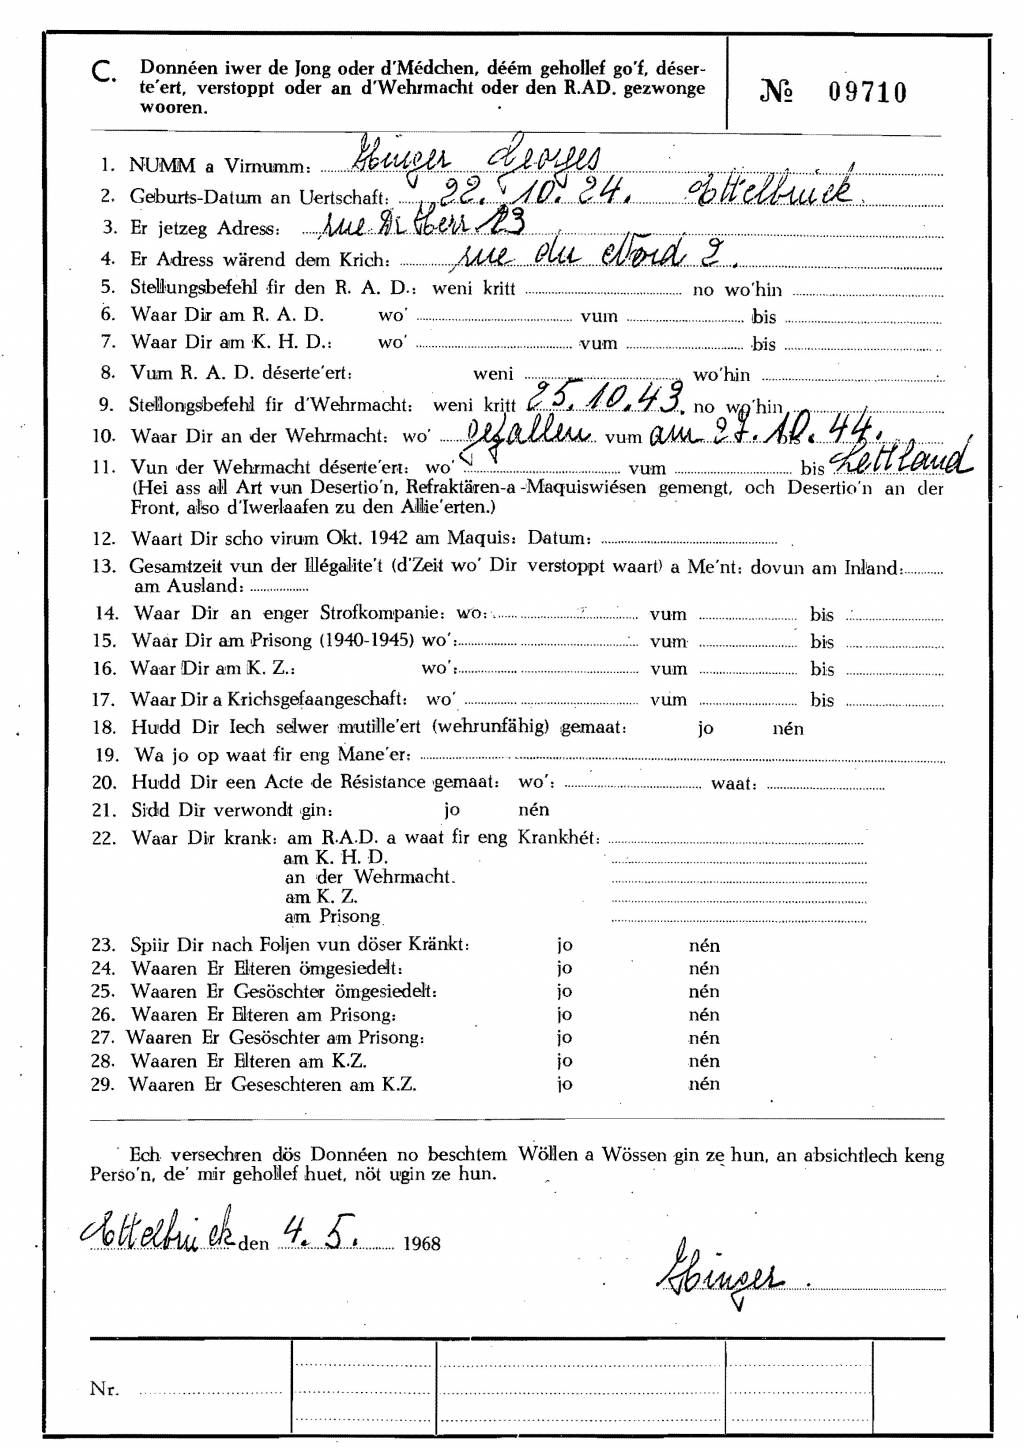 C. Donnéen iwer de Jong oder d'Médchen, déém gehollef go'f, déser-
te'ert, verstoppt oder an d'Wehrmacht oder den R.AD. gezwonge
wooren.
№ 09710
1. NUMM a Virnumm: Hinger Georges
2. Geburts-Datum an Uertschaft: 22. 10. 24. Ettelbrück.
3. Er jetzeg Adress: rue Dr Herr 23
4. Er Adress wärend dem Krich: rue du Nord 2.
5. Stellungsbefehl fir den R. A. D.: weni kritt no wo'hin
6. Waar Dir am R. A. D. wo' vum bis
7. Waar Dir am K. H. D.: wo' vum bis
8. Vum R. A. D. déserte'ert: weni wo'hin
9. Stellongsbefehl fir d'Wehrmacht: weni kritt 25. 10. 43. no wo'hin
10. Waar Dir an der Wehrmacht: wo' gefallen vum am 27. 10. 44.
11. Vun der Wehrmacht déserte'ert: wo' vum bis Lettland
(Hei ass all Art vun Desertio'n, Refraktären-a-Maquiswiésen gemengt, och Desertio'n an der
Front, also d'Iwerlaafen zu den Allie'erten.)
12. Waart Dir scho virum Okt. 1942 am Maquis: Datum:
13. Gesamtzeit vun der Illégalite't (d'Zeit wo' Dir verstoppt waart) a Me'nt: dovun am Inland:
am Ausland:
14. Waar Dir an enger Strofkompanie: wo: vum bis
15. Waar Dir am Prisong (1940-1945) wo': vum bis
16. Waar Dir am K. Z.: wo': vum bis
17. Waar Dir a Krichsgefaangeschaft: wo' vum bis
18. Hudd Dir Iech selwer mutille'ert (wehrunfähig) gemaat: jo nén
19. Wa jo op waat fir eng Mane'er:
20. Hudd Dir een Acte de Résistance gemaat: wo': waat:
21. Sidd Dir verwondt gin: jo nén
22. Waar Dir krank: am R.A.D. a waat fir eng Krankhét:
am K. H. D.
an der Wehrmacht.
am K. Z.
am Prisong
23. Spiir Dir nach Foljen vun döser Kränkt: jo nén
24. Waaren Er Elteren ömgesiedelt: jo nén
25. Waaren Er Gesöschter ömgesiedelt: jo nén
26. Waaren Er Elteren am Prisong: jo nén
27. Waaren Er Gesöschter am Prisong: jo nén
28. Waaren Er Elteren am K.Z. jo nén
29. Waaren Er Geseschteren am K.Z. jo nén
Ech versechren dös Donnéen no beschtem Wöllen a Wössen gin ze hun, an absichtlech keng
Perso'n, de' mir gehollef huet, nöt ugin ze hun.
Ettelbrück den 4. 5. 1968
Hinger.
Nr.